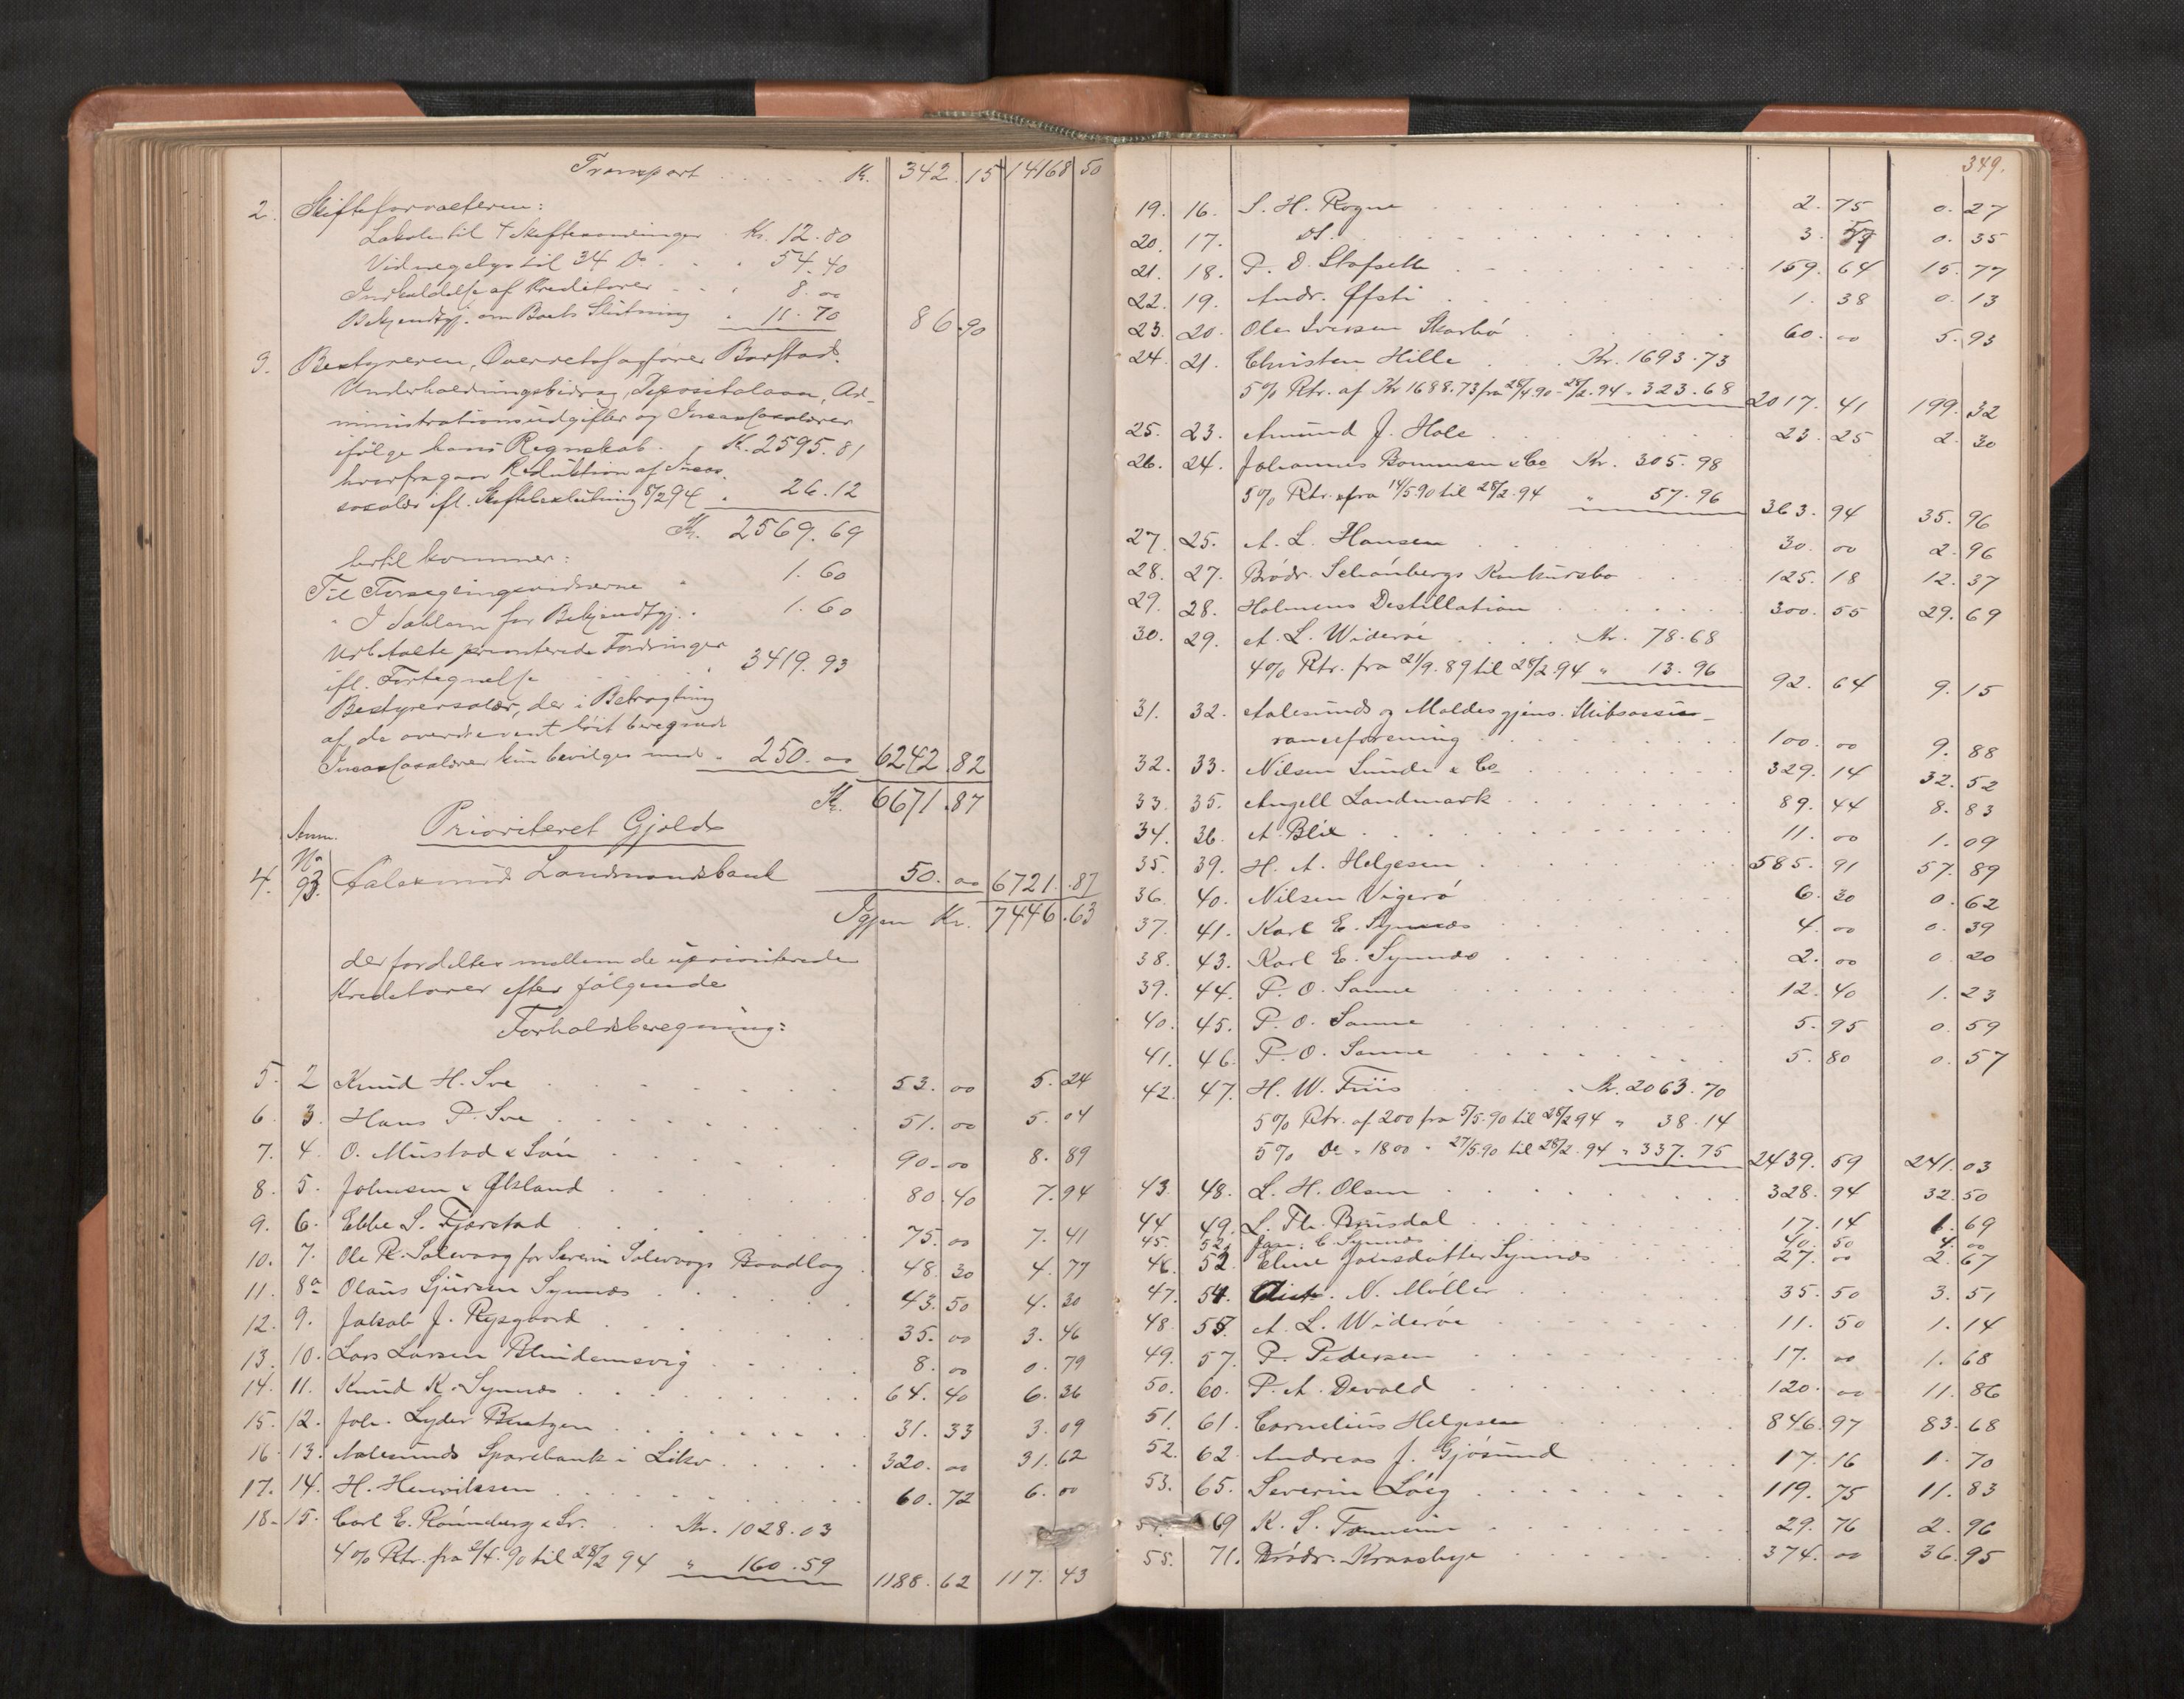 Transport . . . . . Kr. 342.15 14168 50
2. Skifteforvalteren:
Lokaletil 4 Skiftesamlinger Kr. 12.80
Vidnegebyr til 34 Do . . 54.40
Indkaldelse af Kreditorer . . 8.00
Bekjendtgj. om Boets Slutning " 11.70 86.90
3. Bestyreren, Overretssagfører Barstad.
Underholdningsbidrag, Depositalaan, Ad-
ministrationsudgifter og Incassosalærer
ifølge hans Regnskab. Kr. 2595.81
hvorfra gaar Reduktion af Incas-
sosalær ifl. Skiftebeslutning 5/2 94 " 26.12
Kr. 2569.69
hertil kommer:
Til Forseglingsvidnerne " 1.60
" I Dahlem for Bekjendtgj. 1.60
Udbetalte prioriterede Fordringer
ifl. Fortegnelse . . . 3419.93
Bestyrersalær, der i Betragtning
af de overordentligt høit beregnede
Incassosalærer kun bevilges med " 250.00 6242.82
Kr. 6671.87
Anm. Prioriteret Gjeld
No
4. 93. Aalesunds Landmandsbank 50.00 6721.87
Igjen Kr. 7446.63
der fordeltes mellem de uprioriterede
Kreditorer efter følgende
Forholdsberegning:
5. 2 Knud H. Sve . . . 53.00 5.24
6. 3. Hans P. Sve . . . 51.00 5.04
7. 4. O. Mustad & Søn . . . 90.00 8.89
8. 5. Johnsen & Øksland . . . 80.40 7.94
9. 6. Ebbe S. Fjørstad . . . 75.00 7.41
10. 7. Ole R. Solevaag for Severin Solevaags Baadlag . 48.30 4.77
11. 8a Olaus Sjursen Synnes . . . 43.50 4.30
12. 9. Jakob J. Rysgaard . . . 35.00 3.46
13. 10. Lars Larsen Blindemsvig . . . 8.00 0.79
14. 11. Knud K. Synnes . . . 64.40 6.36
15. 12. Joh. Lyder Bruntzen . . . 31.33 3.09
16. 13. Aalesunds Sparebank i Likv. . . . 320.00 31.62
17. 14. H. Henriksen . . . 60.72 6.00
18. 15. Carl E. Rønneberg & Sr. . . Kr. 1028.03
4% Rtr. fra 2/4. 90 til 28/2 94 " 160.59 1188.62 117.43
349.
19. 16. S. H. Rogne . . . 2.75 0.27
20. 17. Ds. . . . 3.57 0.35
21. 18. P. D. Stafseth . . . 159.64 15.77
22. 19. Andr. Øfsti . . . 1.38 0.13
23. 20. Ole Iversen Skarbø . . . 60.00 5.93
24. 21. Christen Hille . . Kr. 1693.73
5% Rtr. af Kr 1688.73 fra 28/4 90 - 28/2. 94 " 323.68 2017.41 199.32
25. 23. Amund J. Hole . . . 23.25 2.30
26. 24. Johannes Bommen & Co Kr. 305.98
5% Rtr. fra 14/5.90 til 28/2.94 " 57.96 363.94 35.96
27. 25. A. L. Hansen . . . 30.00 2.96
28. 27. Brødr. Schønbergs Konkursbo . . . 125.18 12.37
29. 28. Holmens Destillation . . . 300.55 29.69
30. 29. A. L. Widerøe . . . Kr. 78.68
4% Rtr. fra 21/9. 89 til 28/2.94 " 13.96 92.64 9.15
31. 32. Aalesunds og Moldes gjens. Skibsassu-
ranceforening . . . 100.00 9.88
32. 33. Nilsen Sunde & Co . . . 329.14 32.52
33. 35. Angell Landmark . . . 89.44 8.83
34. 36. A. Blix . . . 11.00 1.09
35. 39. H. A. Helgesen . . . 585.91 57.89
36. 40. Nilsen Vigerø . . . 6.30 0.62
37. 41. Karl E. Synnes . . . 4.00 0.39
38. 43. Karl E. Synnes . . . 2.00 0.20
39. 44. P. O. Sanne . . . 12.40 1.23
40. 45. P. O. Sanne . . . 5.95 0.59
41. 46. P. O. Sanne . . . 5.80 0.57
42. 47. H. W. Friis . . . Kr. 2063.70
5% Rtr. af 200 fra 5/5.90 til 28/2 94 " 38.14
5% Do " 1800 " 27/5.90 til 28/2. 94 " 337.75 2439.59 241.03
43. 48. L. H. Olsen . . . 328.94 32.50
44. 49. L. Th. Brusdal . . . 17.14 1.69
45. 52. C. Synnes . . . 40.50 4.00
46. 52. Eline Jonsdatter Synnes . . . 27.00 2.67
47. 54. N. Møller . . . 35.50 3.51
48. 55. A. L. Widerøe . . . 11.50 1.14
49. 57. P. Pedersen . . . 17.00 1.68
50. 60. P. A. Devold . . . 120.00 11.86
51. 61. Cornelius Helgesen . . . 846.97 83.68
52. 62. Andreas J. Gjøsund . . . 17.16 1.70
53. 65. Severin Løvig . . . 119.75 11.83
69 K. S. . . . 29.76 2.96
55. 71. Brødr. Kraasbye . . . 374.00 36.95